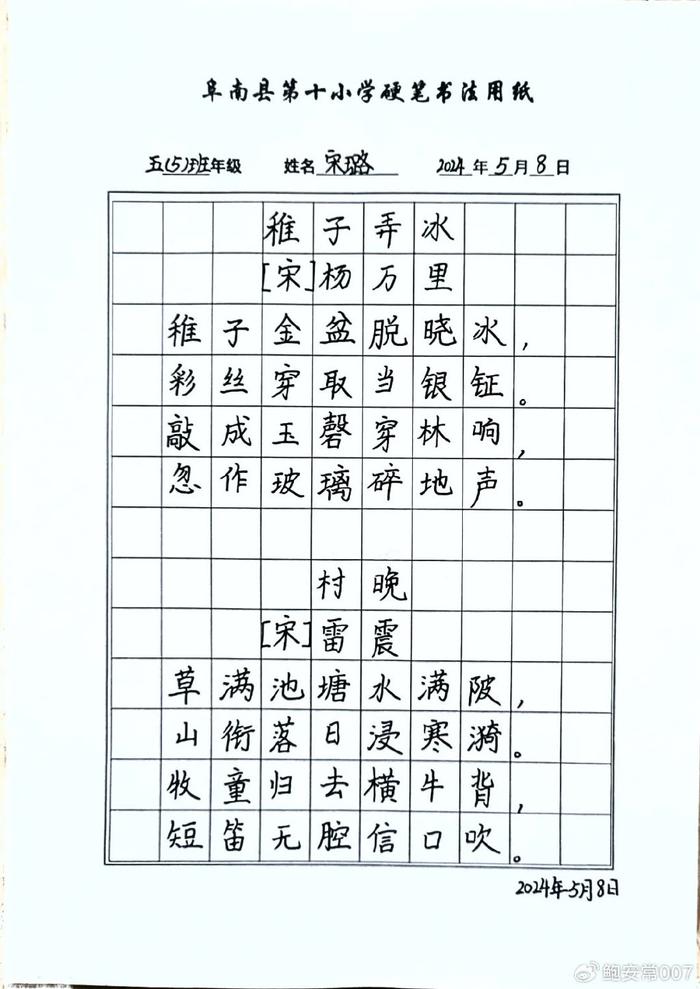 阜南县第十小学硬笔书法用纸
五(5)班年级 姓名 宋璐 2024年5月8日
稚子弄冰
[宋]杨万里
稚子金盆脱晓冰，
彩丝穿取当银钲。
敲成玉磬穿林响，
忽作玻璃碎地声。
村晚
[宋]雷震
草满池塘水满陂，
山衔落日浸寒漪。
牧童归去横牛背，
短笛无腔信口吹。
2024年5月8日
@鲍安常007